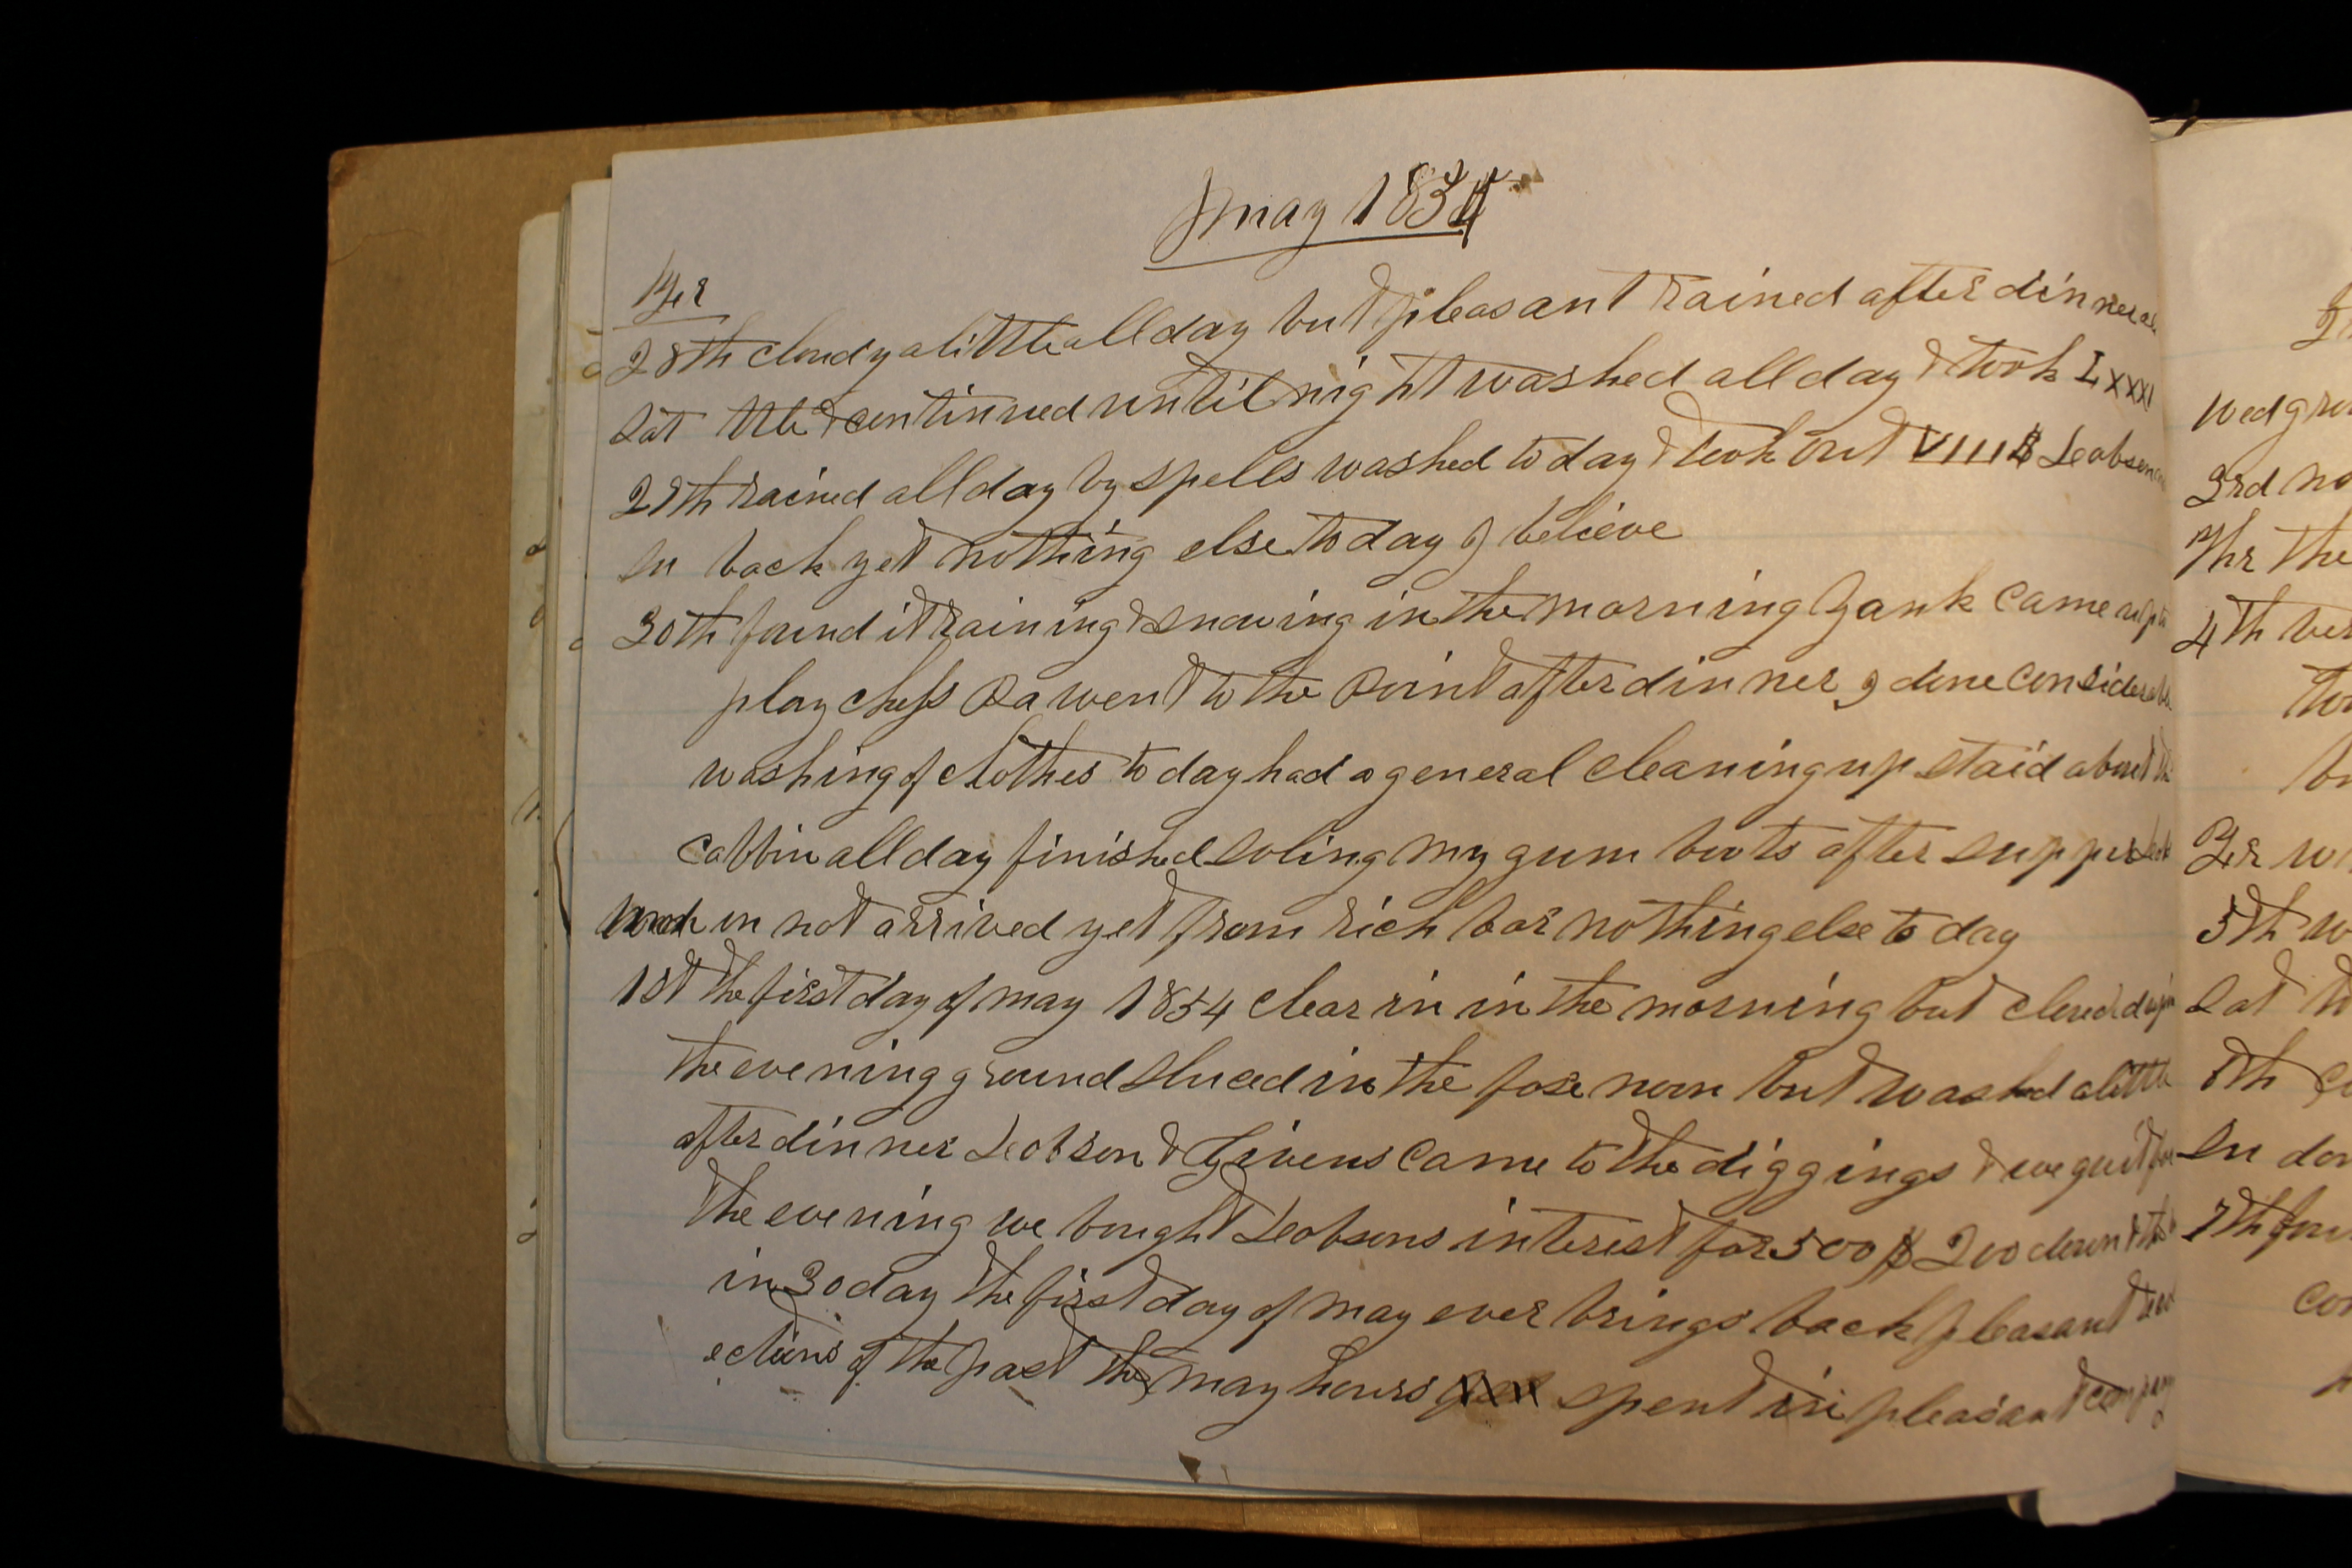 May 1854
Fr
28th cloudy a little all day but pleasant rained after dinner
Sat & continued until night washed all day & took LXXXI
29th rained all day by spells washed to day & took out VIII $ Leobson
Su back yet nothing else to day I believe
30th found it raining & snowing in the morning Zank came up to
play chess Pa went to the Point after dinner I done considerable
washing of clothes to day had a general cleaning up staid about the
cabbin all day finished soling my gum boots after supper Leob
son not arrived yet from rich bar nothing else to day
1st the first day of may 1854 clear in in the morning but cloudd up in
the evening ground sluced in the fore noon but washed a little
after dinner Leobson & Givens came to the diggings & we quit for
the evening we bought Leobsons interest for 500 $ 200 down & the
in 30 day the first day of may ever brings back pleasant recol
ections of the past the may hours spent in pleasant company
Wed
3rd no
Thr the
4th
Fr
5th w
Sat
6th
Su
7th